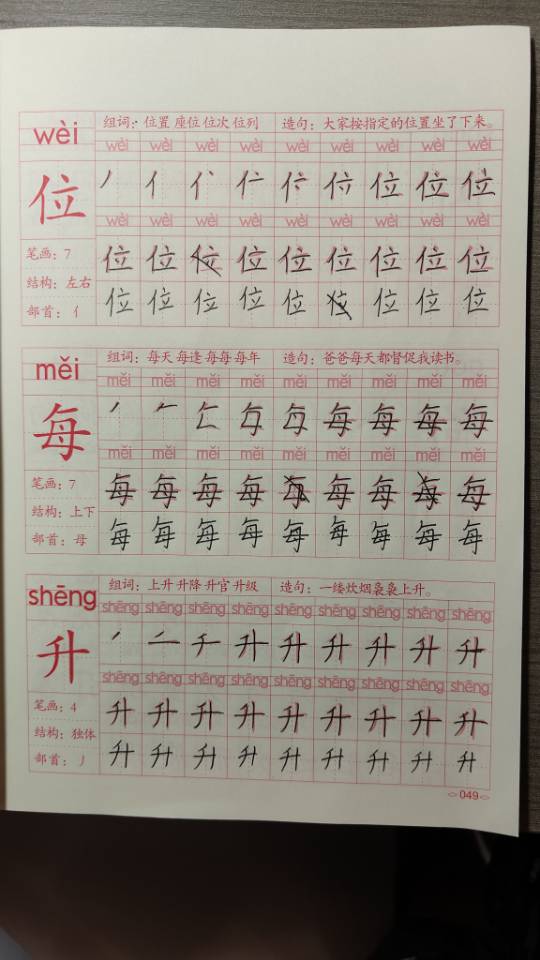 wèi 组词：位置 座位 位次 位列 造句：大家按指定的位置坐了下来。
wèi wèi wèi wèi wèi wèi wèi wèi wèi
位 丿 亻 位 位 位
wèi wèi wèi wèi wèi wèi wèi wèi wèi
笔画：7 位 位 位 位 位 位 位 位 位
结构：左右
部首：亻 位 位 位 位 位 位 位 位 位
měi 组词：每天 每逢 每每 每年 造句：爸爸每天都督促我读书。
měi měi měi měi měi měi měi měi měi
每 每 每 每 每
měi měi měi měi měi měi měi měi měi
笔画：7 每 每 每 每 每 每 每 每 每
结构：上下
部首：母 每 每 每 每 每 每 每 每 每
shēng 组词：上升 升降 升官 升级 造句：一缕炊烟袅袅上升。
shēng shēng shēng shēng shēng shēng shēng shēng shēng
升 升 升 升 升 升 升
shēng shēng shēng shēng shēng shēng shēng shēng shēng
笔画：4 升 升 升 升 升 升 升 升 升
结构：独体
部首：丿 升 升 升 升 升 升 升 升 升
049